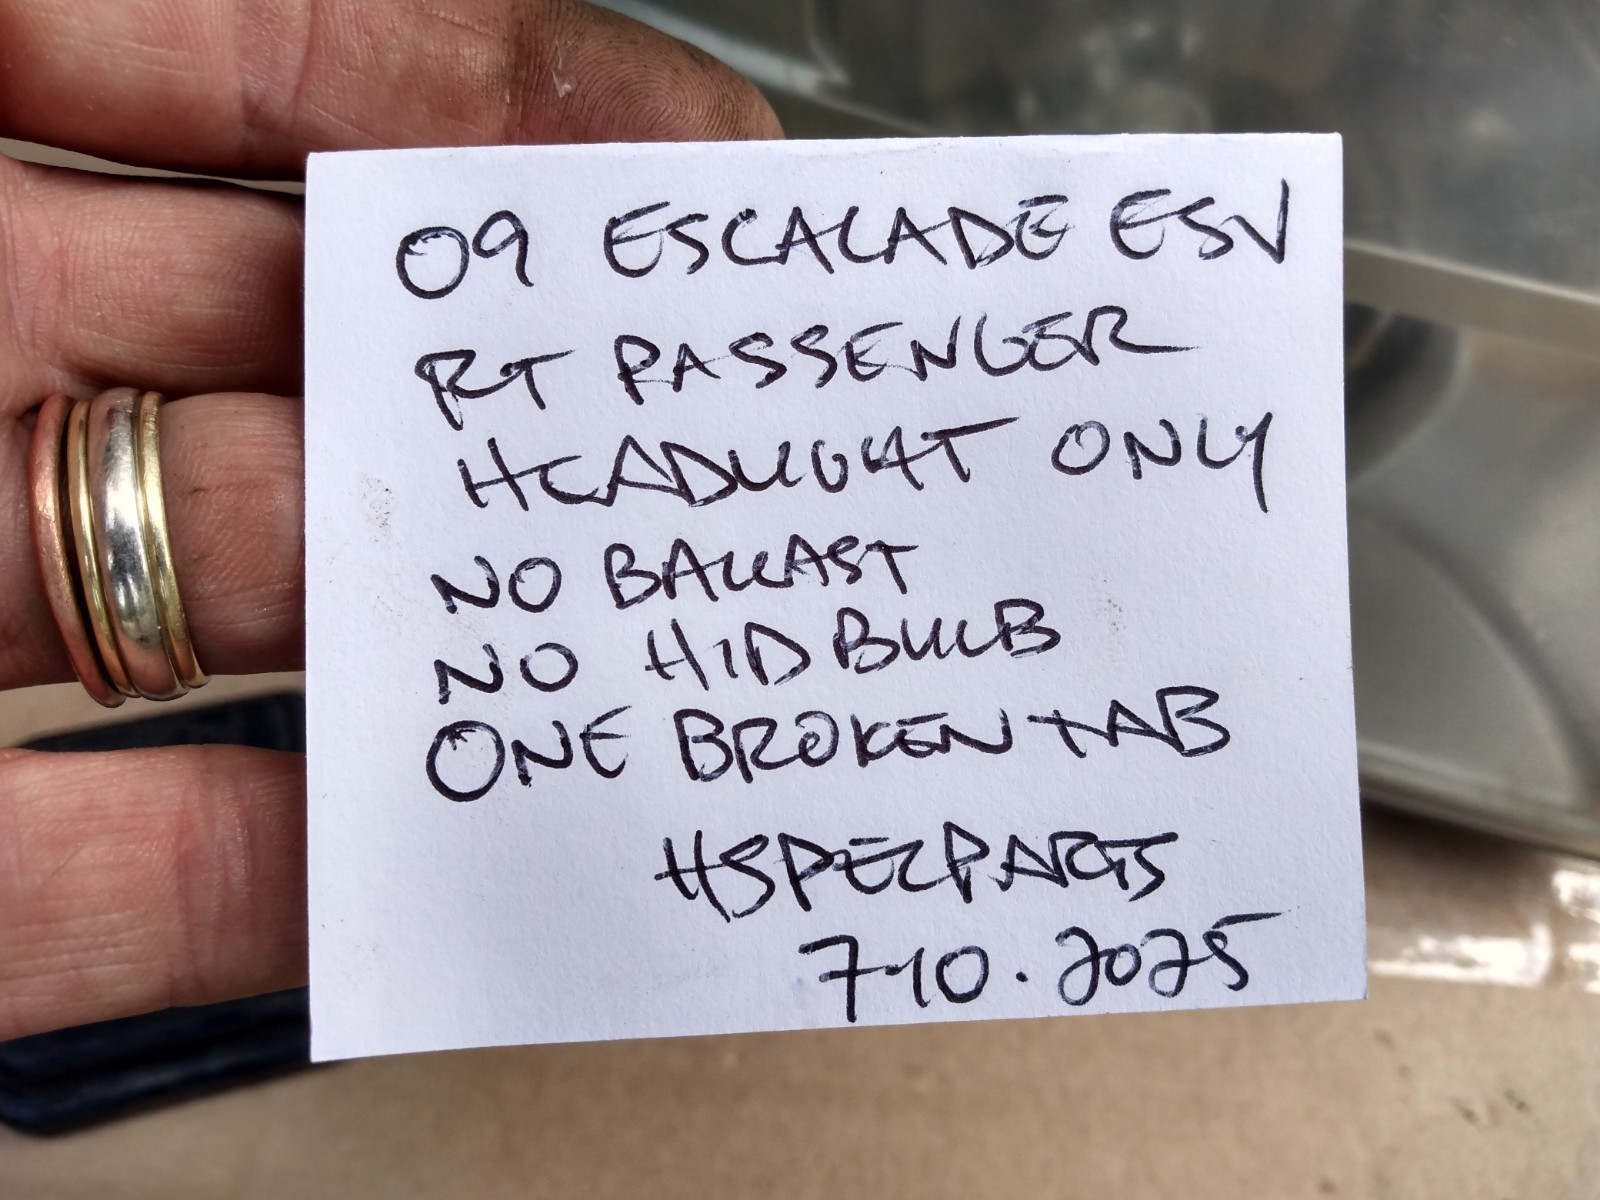 09 ESCALADE ESV
RT PASSENGER
HEADLIGHT ONLY
NO BALLAST
NO HID BULB
ONE BROKEN TAB
HSPECPARTS
7-10.2025